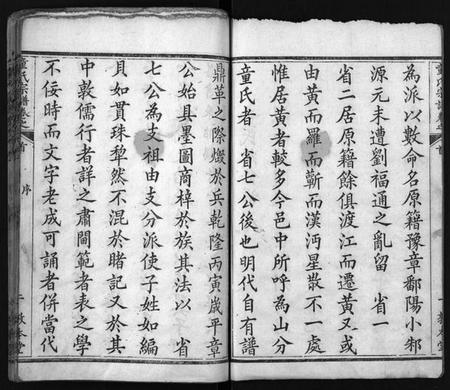 為派以數命名原籍豫章鄱陽小邾
源元末遭劉福通之亂留 省一
省二居原籍餘俱渡江而遷黃又或
由黃而羅而蘄而漢沔星散不一處
惟居黃者較多今邑中所呼為山分
童氏者 省七公後也明代自有譜
鼎革之際燬於兵乾隆丙寅歲平章
公始具墨圖商梓於族其法以 省
七公為支祖由支分派使子姓如編
貝如貫珠犁然不混於賭記又於其
中敦儒行者詳之肅閫範者表之學
不佞時而文字老成可誦者併當代
童氏宗譜卷之首 序